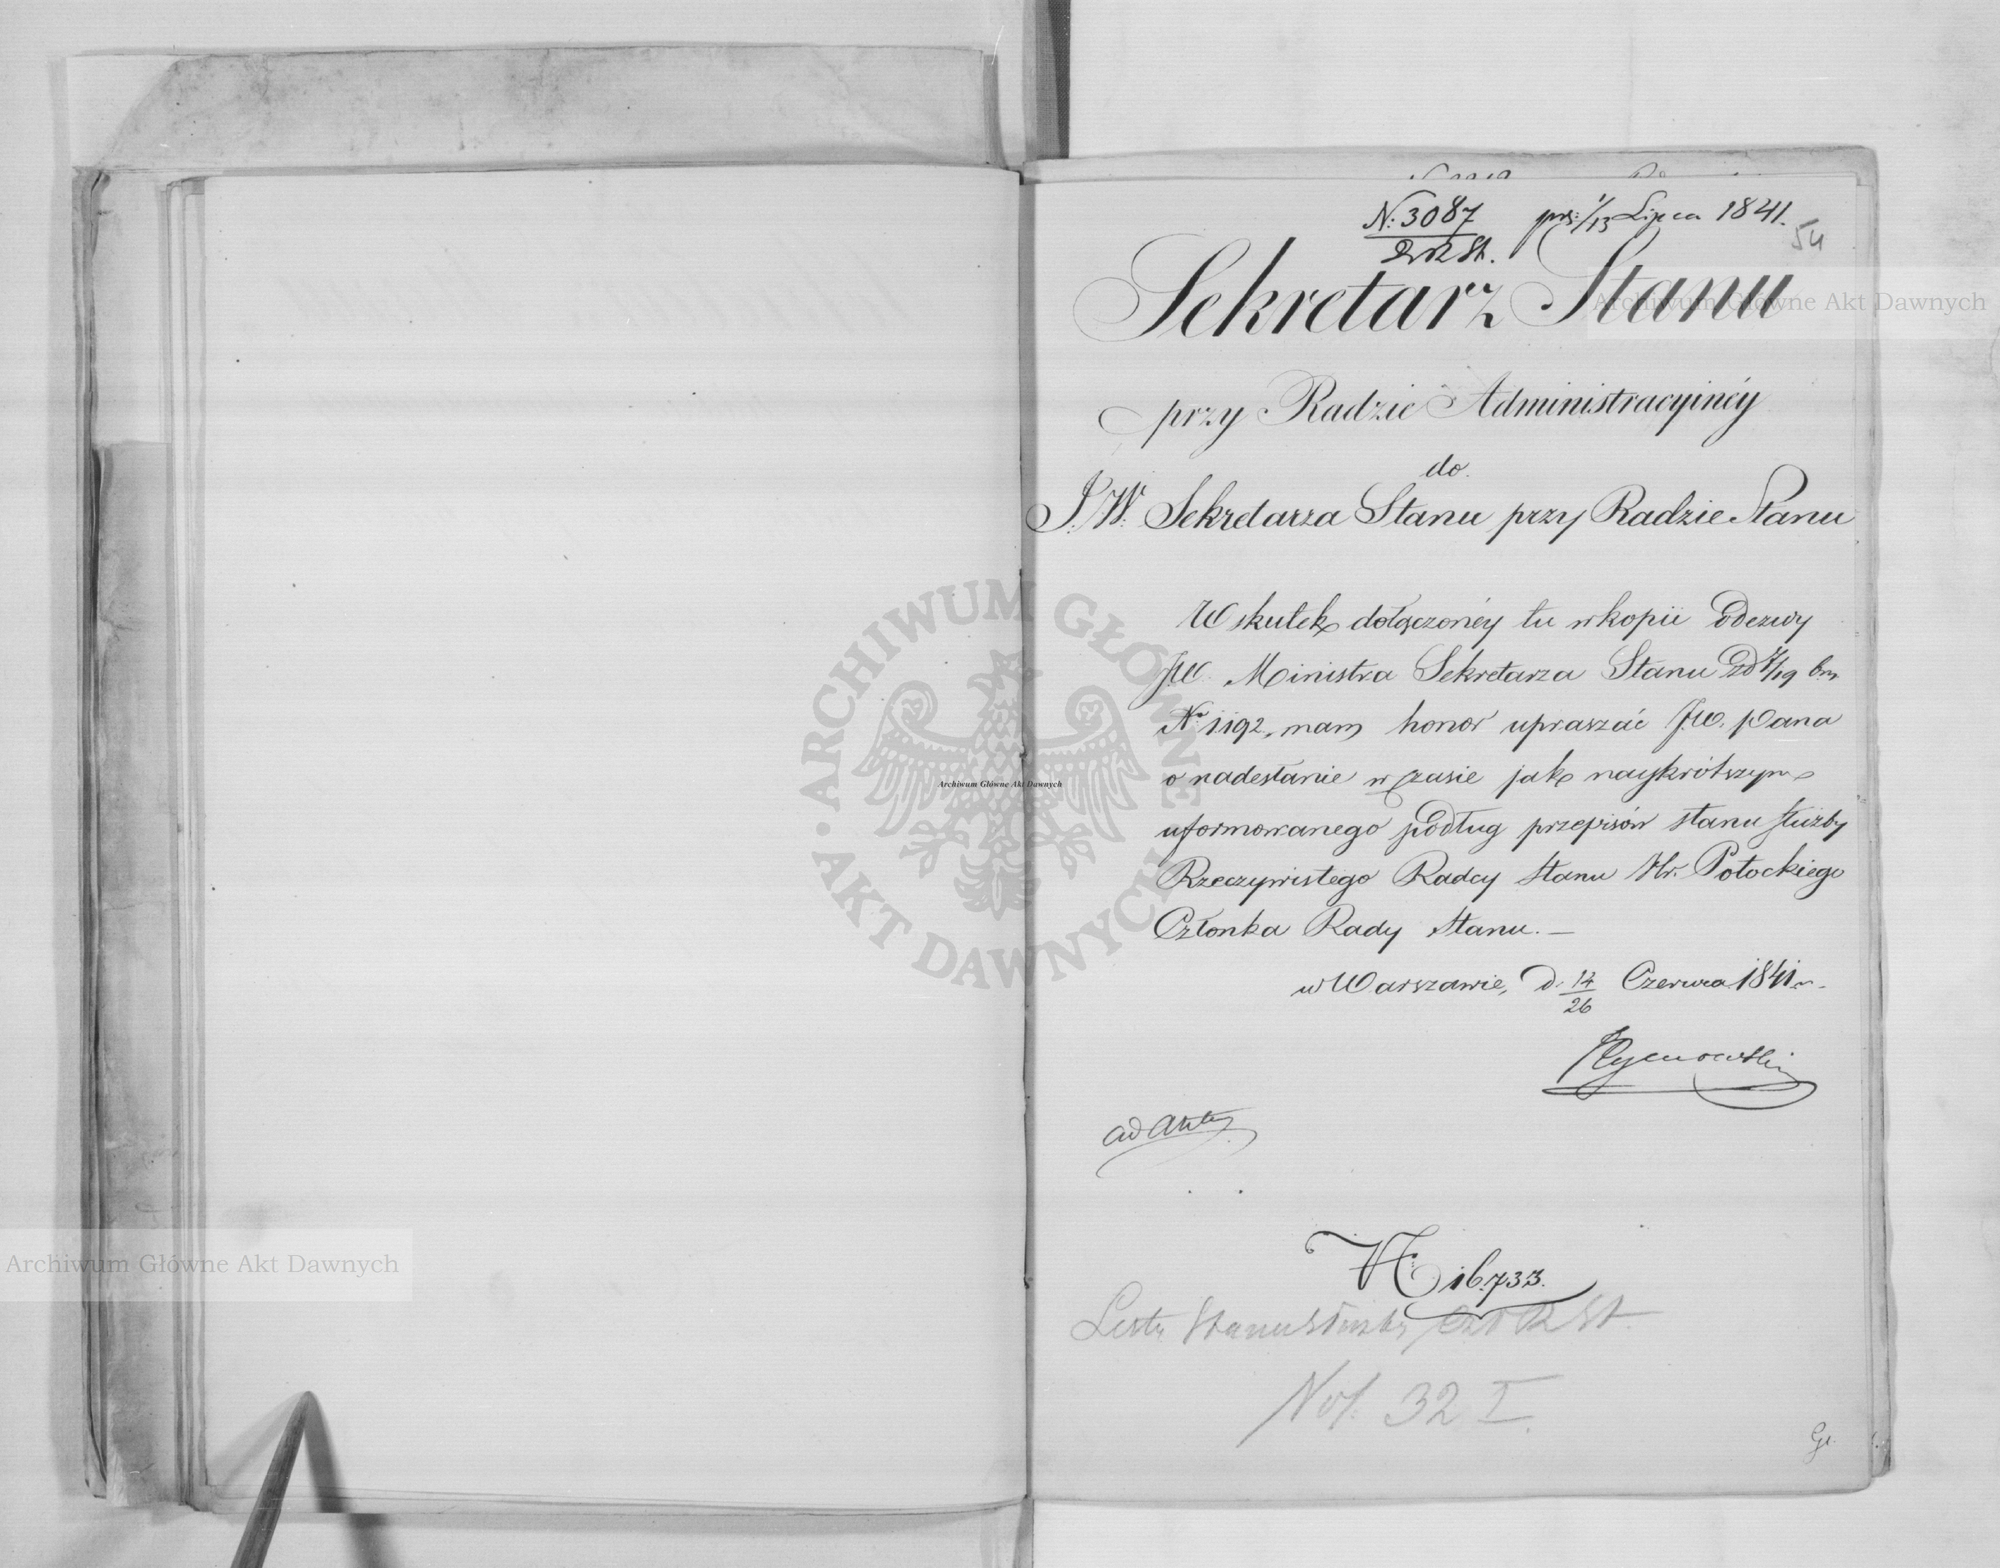 N: 3087 prs: 1/13 Lipca 1841.
54
Sekretarz Stanu
przy Radzie Administracyinéy
do.
J.W. Sekretarza Stanu przy Radzie Stanu
W skutek dołączonéy tu w kopii Odezwy
JW. Ministra Sekretarza Stanu z d 7/19 b.m.
No 1192, mam honor upraszać JW. Pana
o nadesłanie w czasie jak naykrótszym
uformowanego podług przepisów stanu służby
Rzeczywistego Radcy Stanu Hr. Potockiego
Członka Rady Stanu. —
w Warszawie, D. 14/26 Czerwca 1841 r.
ad Akta
N: 16,733.
Stanu Służby R St.
Vol. 32 I.
Archiwum Główne Akt Dawnych
Archiwum Główne Akt Dawnych
Archiwum Główne Akt Dawnych
ARCHIWUM GŁÓWNE AKT DAWNYCH